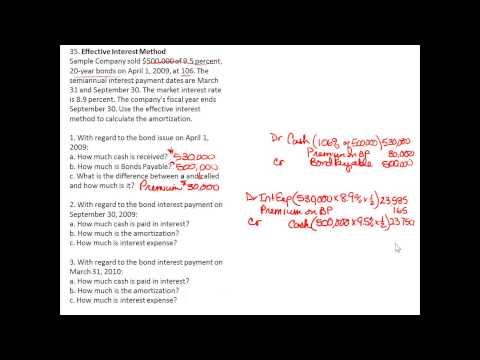 35. Effective Interest Method
Sample Company sold $500,000 of 9.5 percent,
20-year bonds on April 1, 2009, at 106. The
semiannual interest payment dates are March
31 and September 30. The market interest rate
is 8.9 percent. The company's fiscal year ends
September 30. Use the effective interest
method to calculate the amortization.
1. With regard to the bond issue on April 1,
2009:
a. How much cash is received? $530,000
b. How much is Bonds Payable? 500,000
c. What is the difference between a and b called
and how much is it? Premium $30,000
2. With regard to the bond interest payment on
September 30, 2009:
a. How much cash is paid in interest?
b. How much is the amortization?
c. How much is interest expense?
3. With regard to the bond interest payment on
March 31, 2010:
a. How much cash is paid in interest?
b. How much is the amortization?
c. How much is interest expense?
Dr Cash (106% of 500,000) 530,000
Premium on BP 30,000
Cr Bond Payable 500,000
Dr Int Exp (530,000 x 8.9% x ½) 23,585
Premium on BP 165
Cr Cash (500,000 x 9.5% x ½) 23,750